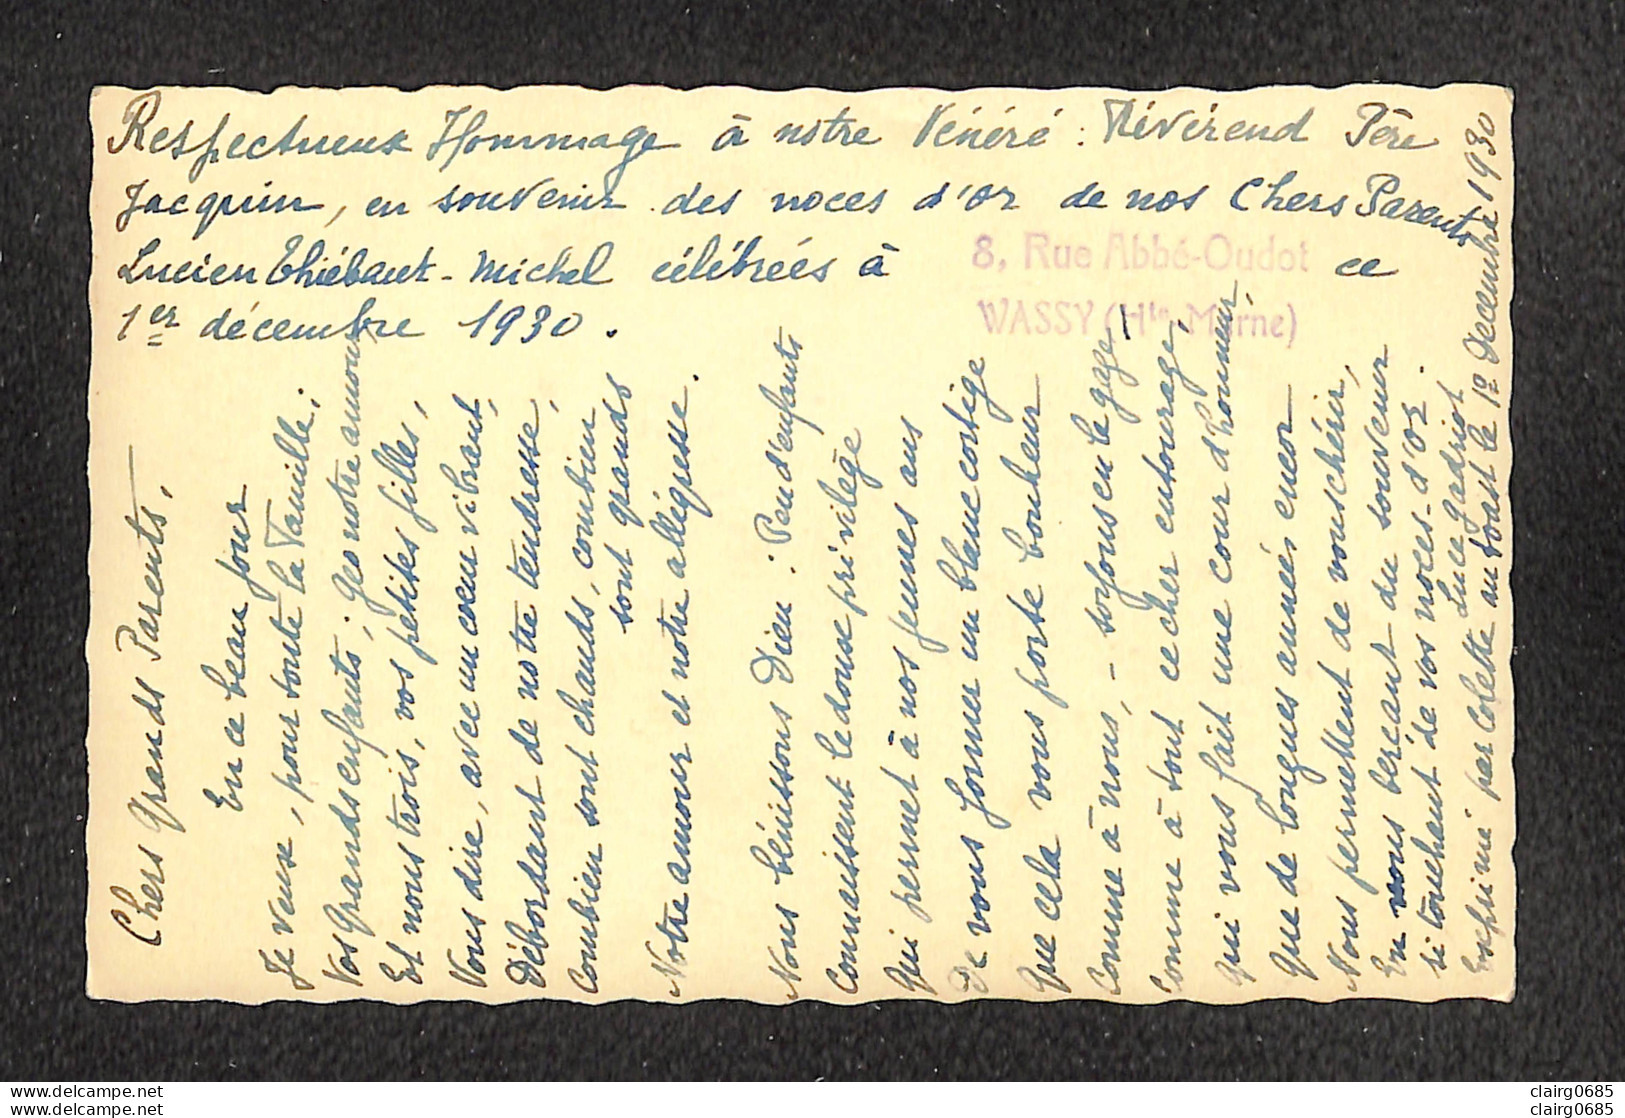 Respectueux Hommage à notre Vénéré : Révérend Père
Jacquin, en souvenir des noces d'or de nos Chers Parents
Lucien Thiébaut - Michel célébrées à
8, Rue Abbé-Oudot
WASSY (Hte-Marne)
ce
1er décembre 1930.
Chers Grands Parents,
En ce beau jour
Je veux, pour toute la Famille,
Vos Grands enfants ; Geo notre amour
Et nous trois, vos petites filles,
Vous dire, avec un coeur vibrant,
Débordant de notre tendresse,
Combien sont chauds, combien
sont grands
Notre amour et notre allégresse.
Nous bénissons Dieu : Peu d'enfants
Connaissent le dousse privilège
Qui permet à nos jeunes ans
De vous former un blanc cortège
Que cela vous porte bonheur
Comme à nous, - soyons en le gage !
Comme à tout ce cher entourage,
Qui vous fait une cour d'honneur,
Que de longues années encor
Nous permettent de vous chérir,
En nous berçant du souvenir
si touchant de vos noces-d'or.
Luce Gadriot
Exprimé par Colette au toast le 1er Decembre 1930
clairg0685
clairg0685